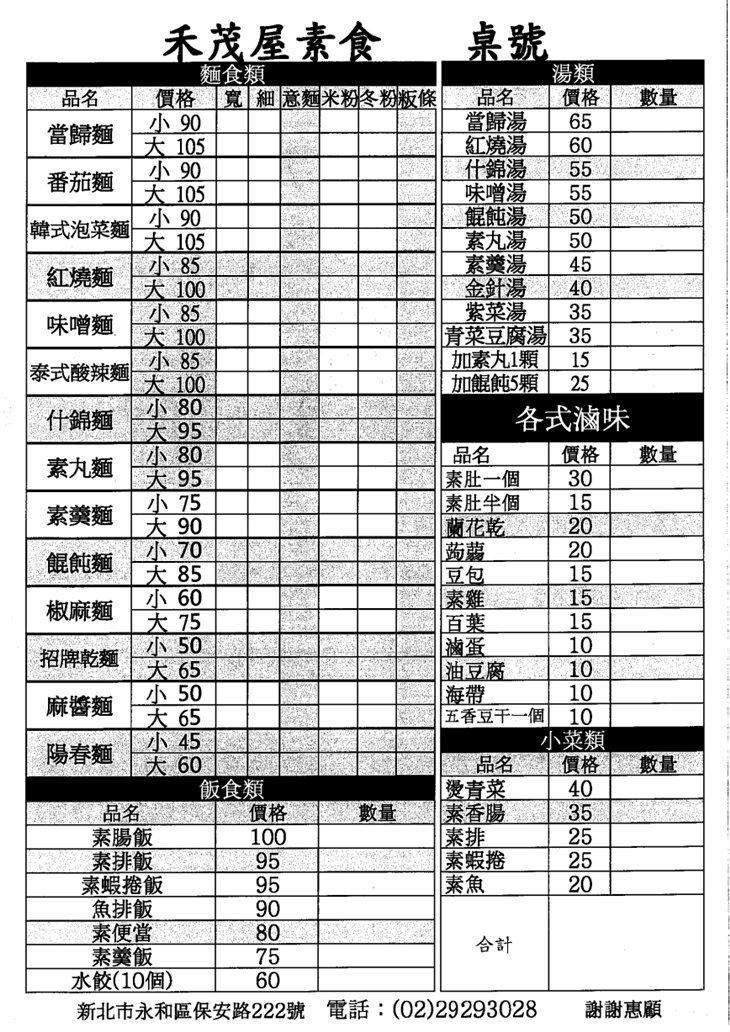 禾茂屋素食 桌號
麵食類
品名 價格 寬 細 意麵 米粉 冬粉 粄條
當歸麵 小 90
大 105
番茄麵 小 90
大 105
韓式泡菜麵 小 90
大 105
紅燒麵 小 85
大 100
味噌麵 小 85
大 100
泰式酸辣麵 小 85
大 100
什錦麵 小 80
大 95
素丸麵 小 80
大 95
素羹麵 小 75
大 90
餛飩麵 小 70
大 85
椒麻麵 小 60
大 75
招牌乾麵 小 50
大 65
麻醬麵 小 50
大 65
陽春麵 小 45
大 60
飯食類
品名 價格 數量
素腸飯 100
素排飯 95
素蝦捲飯 95
魚排飯 90
素便當 80
素羹飯 75
水餃(10個) 60
湯類
品名 價格 數量
當歸湯 65
紅燒湯 60
什錦湯 55
味噌湯 55
餛飩湯 50
素丸湯 50
素羹湯 45
金針湯 40
紫菜湯 35
青菜豆腐湯 35
加素丸1顆 15
加餛飩5顆 25
各式滷味
品名 價格 數量
素肚一個 30
素肚半個 15
蘭花乾 20
蒟蒻 20
豆包 15
素雞 15
百葉 15
滷蛋 10
油豆腐 10
海帶 10
五香豆干一個 10
小菜類
品名 價格 數量
燙青菜 40
素香腸 35
素排 25
素蝦捲 25
素魚 20
合計
新北市永和區保安路222號 電話：(02)29293028 謝謝惠顧